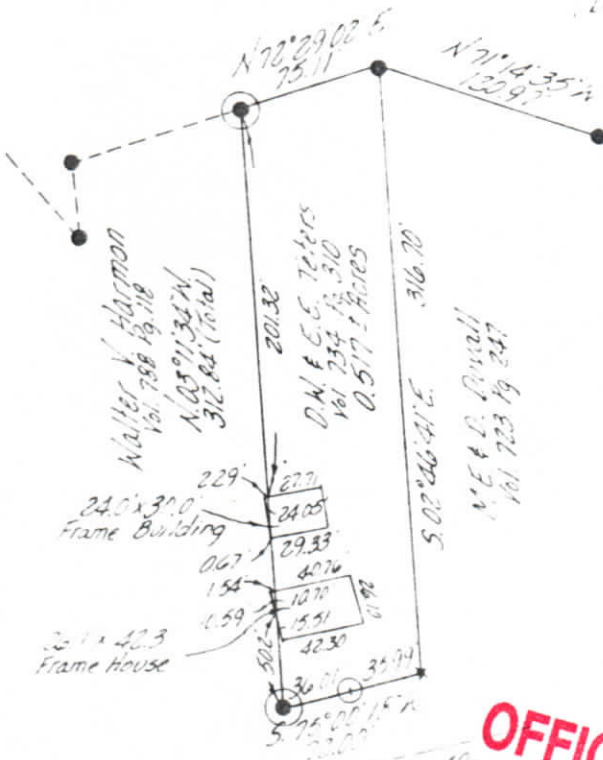 N 72° 29' 02" E
75.11'
N 71° 14' 35" W
130.97'
Walter V. Harmon
Vol. 788 Pg. 118
N. 03° 11' 34" W.
312.84' (Total)
201.32'
D.W. & E.E. Teters
Vol. 734 Pg. 310
0.517 ± Acres
316.70'
S. 02° 46' 41" E.
M.E. & D. Duvall
Vol. 723 Pg. 247
2.29'
27.71
24.0' x 30.0'
Frame Building
24.05'
0.67'
29.33'
1.54'
40.76
10.70
26.10
15.51
42.30
42.3
Frame House
50.2
36.01'
35.99'
S. 75° 00' 15" W
OFFIC